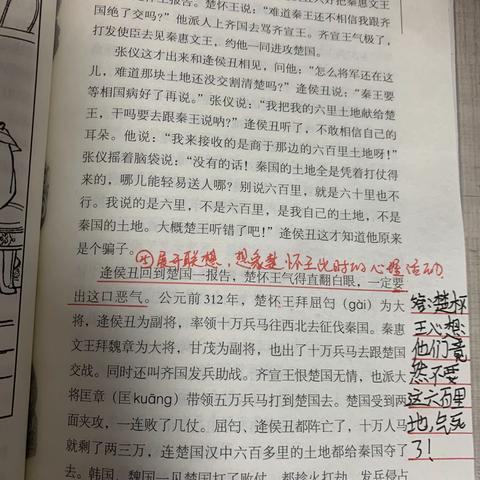 王报告。楚怀王说：“难道秦王还不相信我跟齐
国绝了交吗？”他派人上齐国去骂齐宣王。齐宣王气极了，
打发使臣去见秦惠文王，约他一同进攻楚国。
张仪这才出来和逢侯丑相见，问他：“怎么将军还在这
儿，难道那块土地还没交割清楚吗？”逢侯丑说：“秦王要
等相国病好了再说。”张仪说：“我把我的六里土地献给楚
王，干吗要去跟秦王说呐？”逢侯丑听了，不敢相信自己的
耳朵。他说：“我来接收的是商于那边的六百里土地呀！”
张仪摇着脑袋说：“没有的话！秦国的土地全是凭着打仗得
来的，哪儿能轻易送人哪？别说六百里，就是六十里也不
行。我说的是六里，不是六百里，是我自己的土地，不是
秦国的土地。大概楚王听错了吧！”逢侯丑这才知道他原来
是个骗子。
④展开联想，想象楚怀王此时的心理活动
逢侯丑回到楚国一报告，楚怀王气得直翻白眼，一定要
出这口恶气。公元前312年，楚怀王拜屈匄（gài）为大
将，逢侯丑为副将，率领十万兵马往西北去征伐秦国。秦惠
文王拜魏章为大将，甘茂为副将，也出了十万兵马去跟楚国
交战。同时还叫齐国发兵助战。齐宣王恨楚国无情，也派大
将匡章（匡kuāng）带领五万兵马打到楚国去。楚国受到两
面夹攻，一连败了几仗。屈匄、逢侯丑都阵亡了，十万人马
就剩了两三万，连楚国汉中六百多里的土地都给秦国夺了
去。韩国、魏国一见楚国打了败仗，都趁火打劫，发兵侵占
答：楚怀
王心想：
他们竟
然不要
这六百里
地，气死
了！